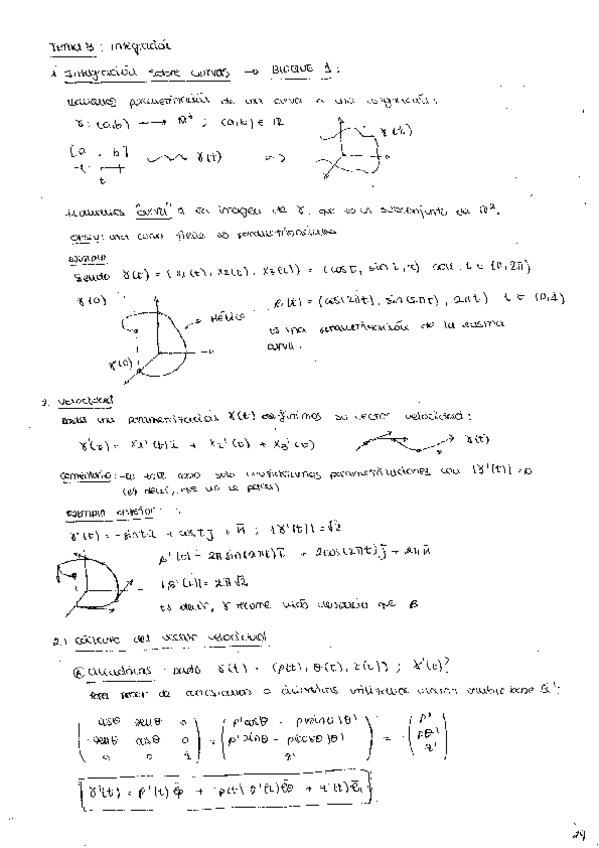 Tema 3: Integración
1 Integración sobre curvas → BLOQUE 1:
Llamamos parametrización de una curva a una
γ: (a,b) → R³ ; (a,b) ∈ R
γ(t)
[a . b] γ(t) =>
t
Llamamos "curva" a la imagen de γ, que es un subconjunto de R³.
una curva tiene ∞ parametrizaciones
Ejemplo
Siendo γ(t) = (x₁(t), x₂(t), x₃(t)) = (cos t, sin t, t) con t ∈ [0, 2π]
γ(0) → Hélice
β(t) = (cos(2πt), sin(2πt), 2πt) t ∈ (0,1)
es una parametrización de la misma
curva.
γ(0)
2. Velocidad
una parametrización γ(t) definimos su vector velocidad:
γ'(t) = x₁'(t)i + x₂'(t) + x₃'(t) γ(t)
Comentario: - En este caso solo parametrizaciones con |γ'(t)| = 0
(es decir, que no se para)
Ejemplo anterior:
γ'(t) = -sin t i + cos t j + k ; |γ'(t)| = √2
β'(t) = 2π sin(2πt) i + 2cos(2πt) j + 2π k
|β'(t)| = 2π√2
Es decir, γ recorre más despacio que β
2.1 Cálculo del vector velocidad
Cilíndricas: dado γ(t) = (ρ(t), θ(t), z(t)) ; γ'(t)?
Para pasar de cartesianas a cilíndricas utilizamos cambio base
cosθ senθ 0 ρ'cosθ - ρ(sinθ)θ' ρ'
-senθ cosθ 0 = ρ'sinθ - ρ(cosθ)θ' = ρθ'
0 0 1 z' z'
γ'(t) = ρ'(t) e̅ρ + ρ(t) θ'(t) e̅θ + z'(t) e̅z
24